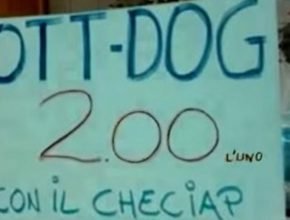 OTT-DOG
2.00 L'UNO
CON IL CHECIAP